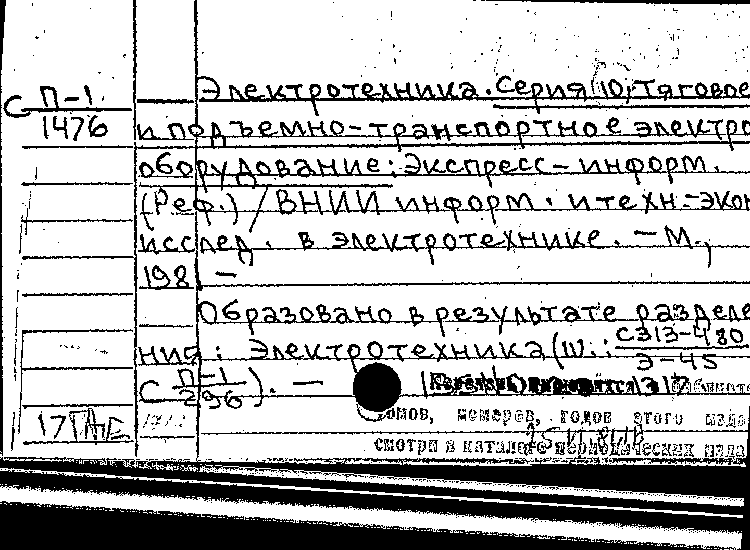 Электротехника. Серия 10, Тяговое
С П-1
1476
и подъемно-транспортное электро
оборудование: Экспресс-информ.
(Реф.) / ВНИИ информ. и техн.-экон
исслед. в электротехнике. - М.,
198 -
Образовано в результате разделе
ния: Электротехника (IV.: С313-480
Э-45
С П-1
296). -
томов, номеров, годов этого изда
смотри в каталоге периодических изда